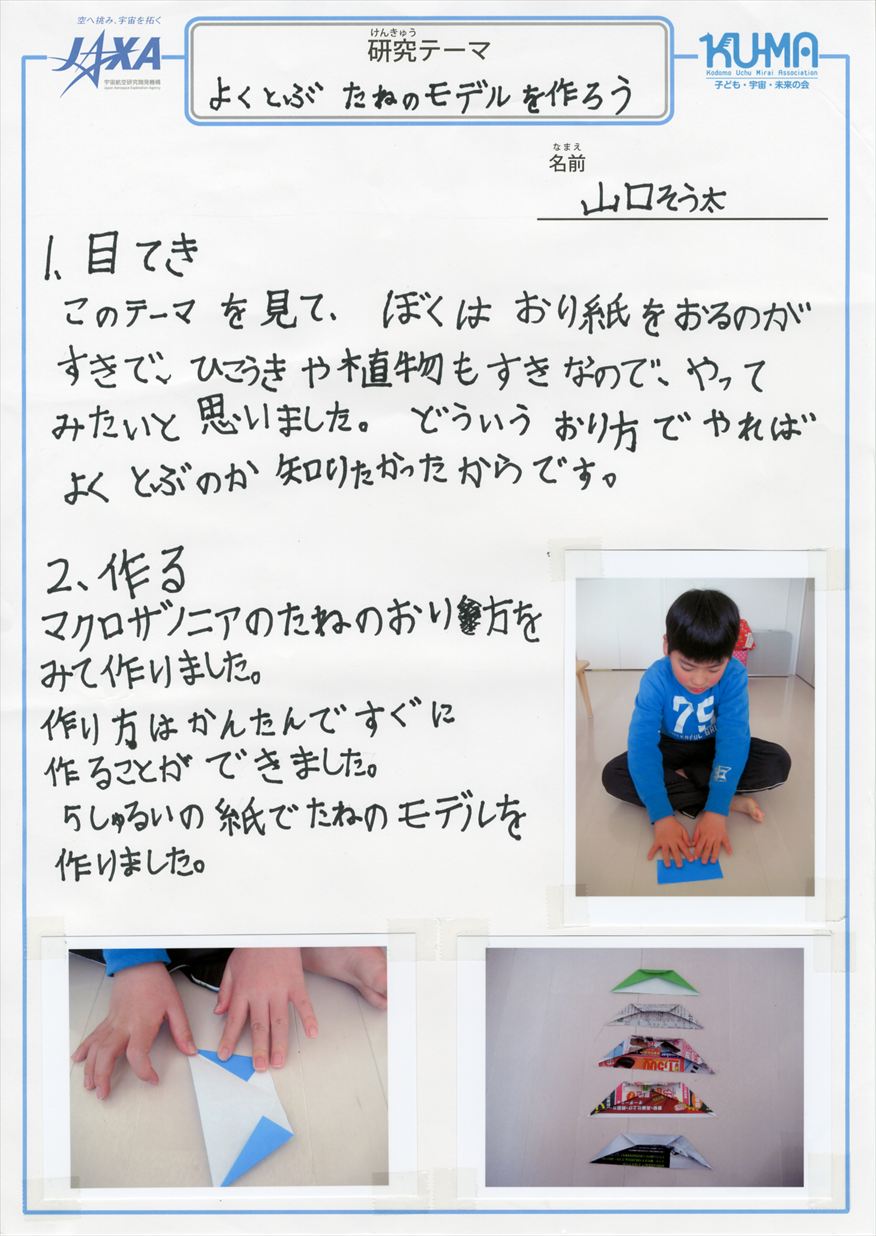 空へ挑み、宇宙を拓く
JAXA
宇宙航空研究開発機構
Japan Aerospace Exploration Agency
けんきゅう
研究テーマ
よくとぶ たねのモデルを作ろう
KU-MA
Kodomo Uchu Mirai Association
子ども・宇宙・未来の会
なまえ
名前
山口そう太
1、目てき
このテーマを見て、ぼくはおり紙をおるのが
すきで、ひこうきや植物もすきなので、やって
みたいと思いました。どういうおり方でやれば
よくとぶのか知りたかったからです。
2、作る
マクロザノニアのたねのおり方を
みて作りました。
作り方はかんたんですぐに
作ることができました。
5しゅるいの紙でたねのモデルを
作りました。
75